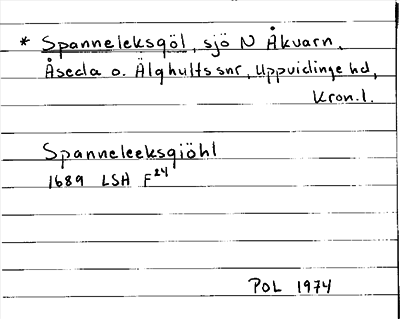 * Spanneleksgöl, sjö N Åkvarn,
Åseda o. Älghults snr, Uppvidinge hd,
Kron.l.
Spanneleeksgiöhl
1689 LSH F24
POL 1974